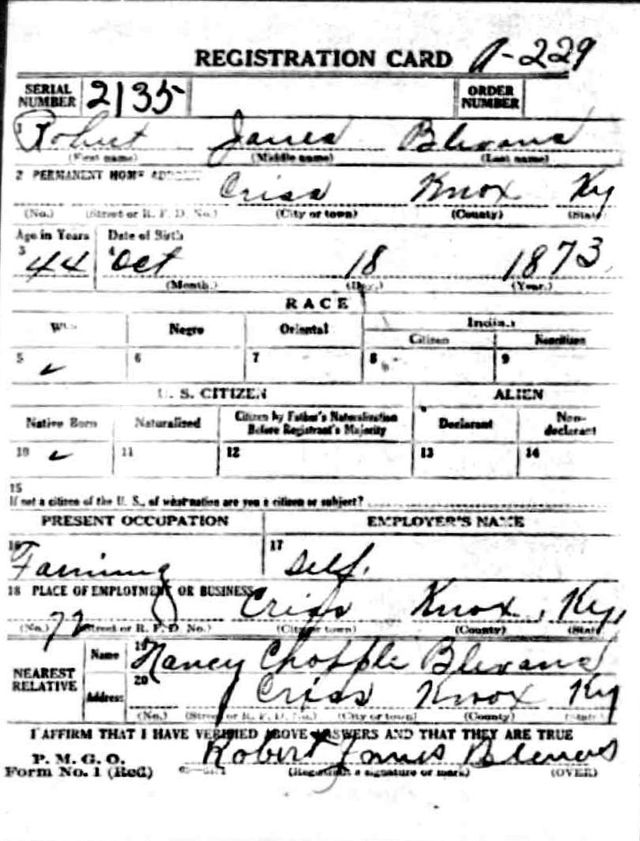 REGISTRATION CARD A-229
SERIAL NUMBER 2135 ORDER NUMBER
1 Robert James Blevans
(First name) (Middle name) (Last name)
2 PERMANENT HOME ADDRESS Criss Knox Ky
(No.) (Street or R. F. D. No.) (City or town) (County) (State)
Age in Years Date of Birth
3 44 4 Oct 18 1873
(Month.) (Day.) (Year.)
RACE
White Negro Oriental Indian
Citizen Noncitizen
5 ✓ 6 7 8 9
U. S. CITIZEN ALIEN
Native Born Naturalized Citizen by Father's Naturalization Before Registrant's Majority Declarant Non-declarant
10 ✓ 11 12 13 14
15
If not a citizen of the U. S., of what nation are you a citizen or subject?
PRESENT OCCUPATION EMPLOYER'S NAME
16 Farming 17 Self.
18 PLACE OF EMPLOYMENT OR BUSINESS Criss Knox, Ky,
(No.) (Street or R. F. D. No.) (City or town) (County) (State)
NEAREST RELATIVE Name 19 Nancy Chopple Blevans
Address 20 Criss Knox Ky
(No.) (Street or R. F. D. No.) (City or town) (County) (State)
I AFFIRM THAT I HAVE VERIFIED ABOVE ANSWERS AND THAT THEY ARE TRUE
P. M. G. O. Robert James Blevans
Form No. 1 (Red) (Registrant's signature or mark) (OVER)